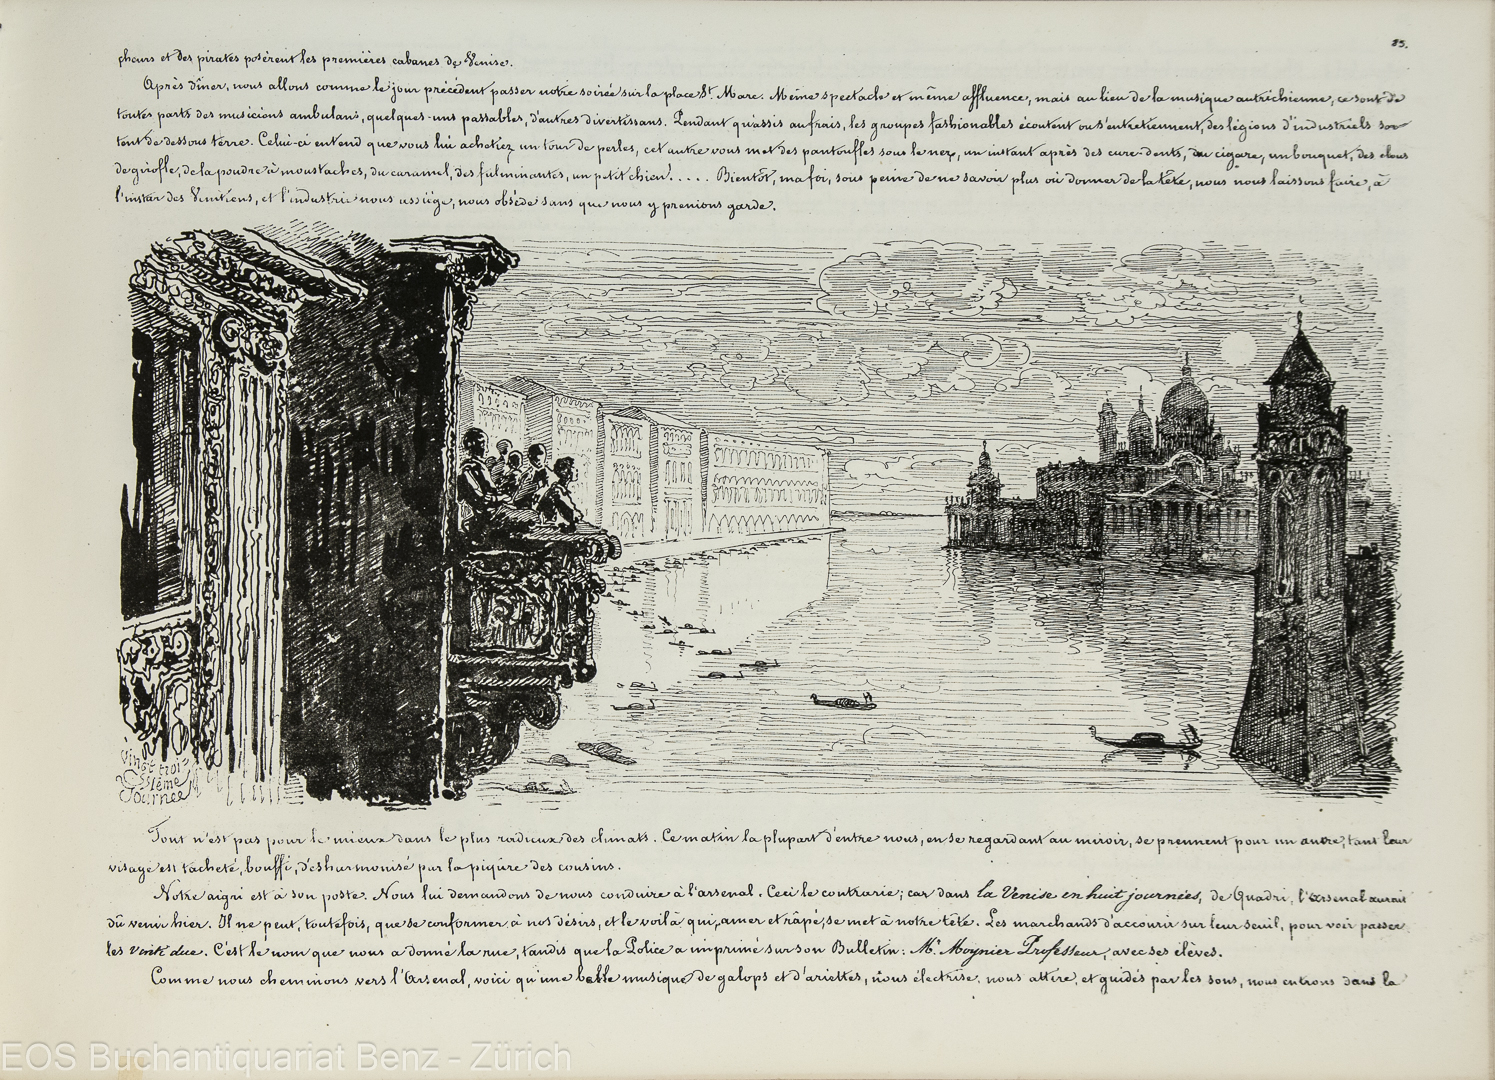 83.
cheurs et des pirates posèrent les premières cabanes de Venise.
Après dîner, nous allons comme le jour précédent passer notre soirée sur la place St. Marc. Même spectacle et même affluence, mais au lieu de la musique autrichienne, ce sont de
toutes parts des musiciens ambulans, quelques-uns passables, d'autres divertissans. Pendant qu'assis au frais, les groupes fashionables écoutent ou s'entretiennent, des légions d'industriels sor-
tent de dessous terre. Celui-ci entend que vous lui achetiez un tour de perles, cet autre vous met des pantouffles sous le nez, un instant après des cure-dents, du cigare, un bouquet, des clous
de girofle, de la poudre à moustaches, du caramel, des fulminantes, un petit chien..... Bientôt, ma foi, sous peine de ne savoir plus où donner de la tête, nous nous laissons faire, à
l'instar des Vénitiens, et l'industrie nous assiège, nous obsède sans que nous y prenions garde.
Vingt troi-
sième
Journée
Tout n'est pas pour le mieux dans le plus radieux des climats. Ce matin la plupart d'entre nous, en se regardant au miroir, se prennent pour un autre, tant leur
visage est tacheté, bouffi, désharmonisé par la piqûre des cousins.
Notre aigri est à son poste. Nous lui demandons de nous conduire à l'arsenal. Ceci le contrarie; car dans la Venise en huit journées, de Quadri, l'arsenal aurait
dû venir hier. Il ne peut, toutefois, que se conformer à nos désirs, et le voilà qui, amer et râpé, se met à notre tête. Les marchands d'accourir sur leur seuil, pour voir passer
les vinti due. C'est le nom que nous a donné la rue, tandis que la Police a imprimé sur son Bulletin: Mr. Moynier Professeur, avec ses élèves.
Comme nous cheminons vers l'Arsenal, voici qu'une belle musique de galops et d'ariettes, nous électrise, nous attire, et guidés par les sons, nous entrons dans la
EOS Buchantiquariat Benz - Zürich